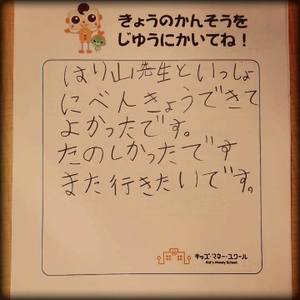 きょうのかんそうを
じゆうにかいてね！
はり山先生といっしょ
にべんきょうできて
よかったです。
たのしかったです
また行きたいです。
キッズ・マネー・スクール
Kid's Money School